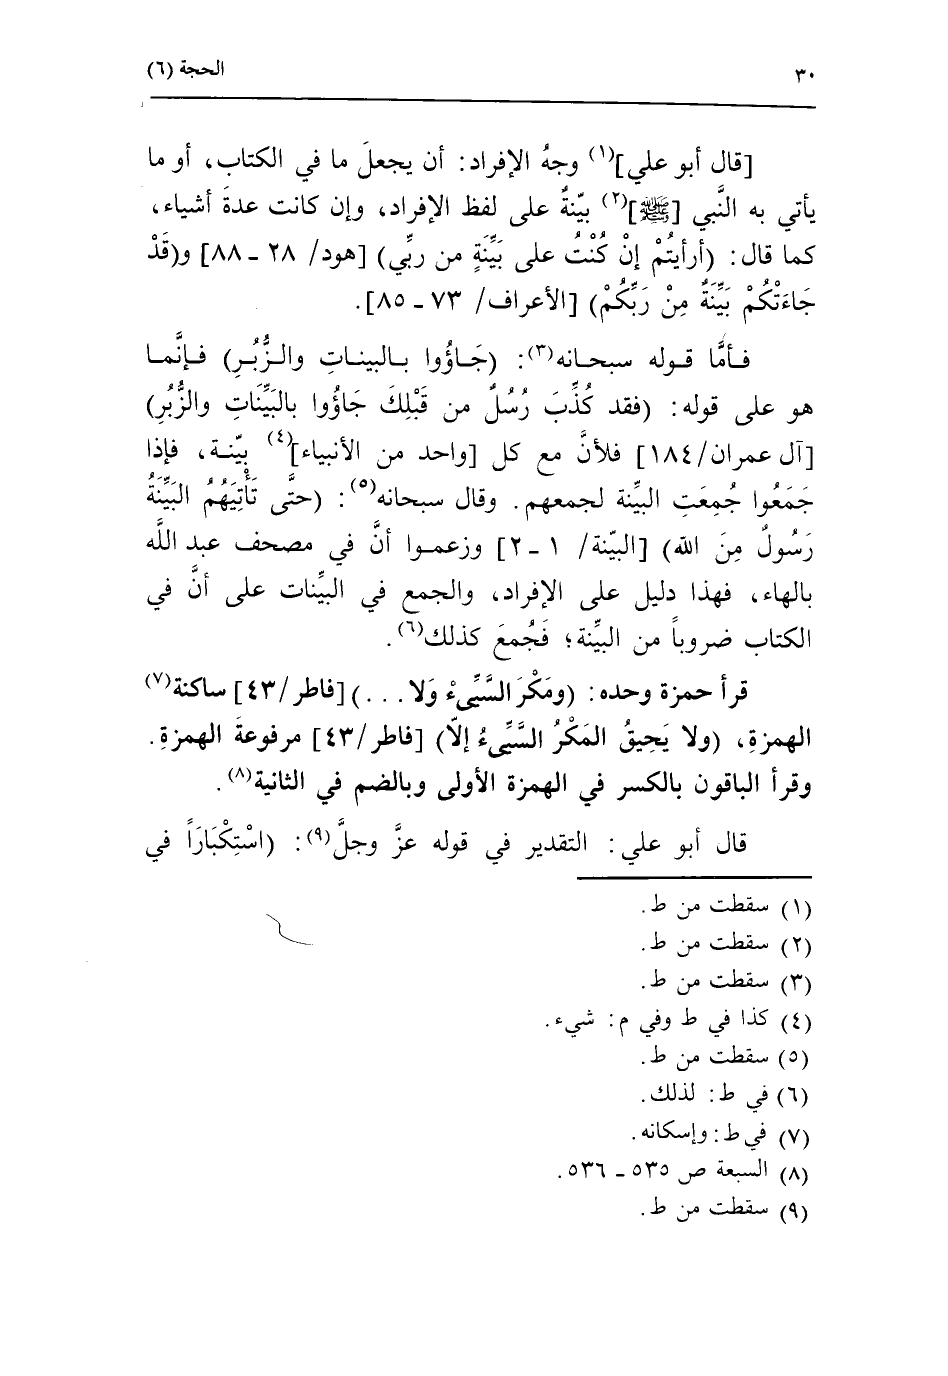 ٣٠
الحجة (٦)
[قال أبو علي](١) وجهُ الإفراد: أن يجعلَ ما في الكتاب، أو ما
يأتي به النَّبي [ﷺ](٢) بيّنةٌ على لفظ الإفراد، وإن كانت عدةَ أشياء،
كما قال: (أرأيتُمْ إنْ كُنْتُ على بَيِّنَةٍ من ربِّي) [هود/ ٢٨ ـ ٨٨] و(قَدْ
جَاءَتْكُمْ بَيِّنَةٌ مِنْ رَبِّكُمْ) [الأعراف/ ٧٣ ـ ٨٥].
فأمَّا قوله سبحانه(٣): (جَاؤُوا بالبيناتِ والزُّبُرِ) فإنَّما
هو على قوله: (فقد كُذِّبَ رُسُلٌ من قَبْلِكَ جَاؤُوا بالبَيِّنَاتِ والزُّبُرِ)
[آل عمران/١٨٤] فلأنَّ مع كل [واحد من الأنبياء](٤) بيّنة، فإذا
جَمَعُوا جُمِعَتِ البيِّنة لجمعهم. وقال سبحانه(٥): (حتَّى تَأْتِيَهُمُ البَيِّنَةُ
رَسُولٌ مِنَ الله) [البيّنة/ ١ ـ ٢] وزعموا أنَّ في مصحف عبد اللَّه
بالهاء، فهذا دليل على الإفراد، والجمع في البيِّنات على أنَّ في
الكتاب ضروباً من البيِّنة؛ فَجُمعَ كذلك(٦).
قرأ حمزة وحده: (ومَكْرَ السَّيِّىءْ وَلا ...) [فاطر/٤٣] ساكنة(٧)
الهمزةِ، (ولا يَحِيقُ المَكْرُ السَّيِّىءُ إلاّ) [فاطر/٤٣] مرفوعةَ الهمزةِ.
وقرأ الباقون بالكسر في الهمزة الأولى وبالضم في الثانية(٨).
قال أبو علي: التقدير في قوله عزَّ وجلَّ(٩): (اسْتِكْبَارَاً في
(١) سقطت من ط.
(٢) سقطت من ط.
(٣) سقطت من ط.
(٤) كذا في ط وفي م: شيء.
(٥) سقطت من ط.
(٦) في ط: لذلك.
(٧) في ط: وإسكانه.
(٨) السبعة ص ٥٣٥ ـ ٥٣٦.
(٩) سقطت من ط.